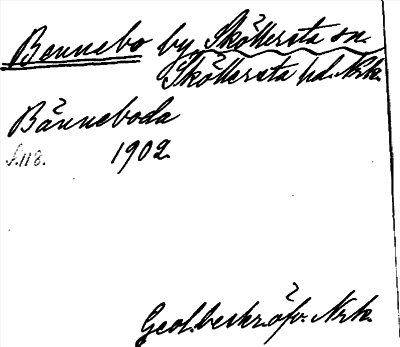 Bennebo by, Sköllersta sn.
Sköllersta hd. Nrk.
Bänneboda
S.118. 1902.
Geol. beskr. öfv. Nrk.